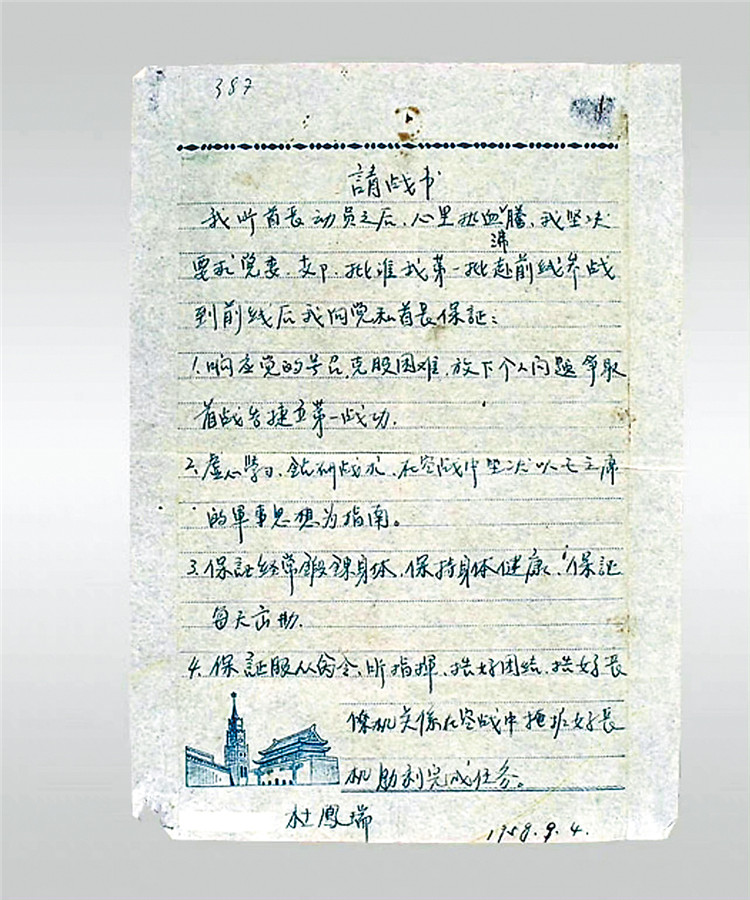 387
請战书
我听首長动员之后、心里热血沸騰、我坚决
要求党委、支卩、批准我第一批赴前线参战
到前线后我向党和首長保証：
1.响应党的号召、克服困难、放下个人问题争取
首战告捷立第一战功.
2.虚心学习、鉆研战术、在空战中坚决以毛主席
的軍事思想为指南。
3.保証经常鍛鍊身体、保持身体健康、保証
每天出勤.
4.保証服从命令、听指揮、搞好团结、搞好長
僚机关係在空战中掩护好長
机勝利完成任务。
杜鳳瑞
1958.9.4.